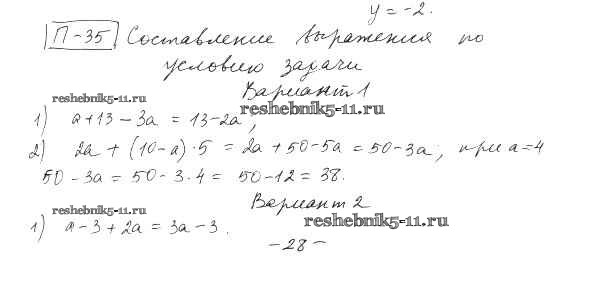 y = -2.
П-35 Составление выражения по
условию задачи
Вариант 1
reshebnik5-11.ru reshebnik5-11.ru
1) a+13-3a = 13-2a;
2) 2a + (10-a)·5 = 2a+50-5a = 50-3a; при a=4
50-3a = 50-3·4 = 50-12 = 38.
Вариант 2
reshebnik5-11.ru reshebnik5-11.ru
1) a-3+2a = 3a-3.
-28-